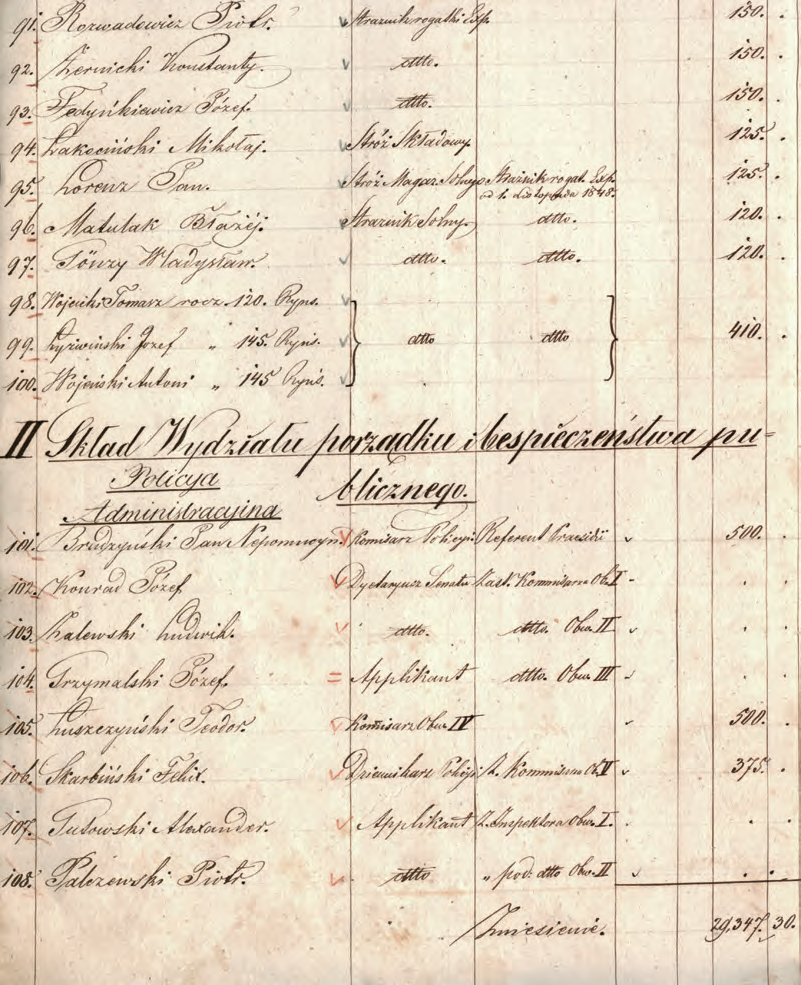 91. Rozwadowicz Piotr. Strażnik rogatki Exp. 150.
92. Żernicki Konstanty. dtto. 150.
93. Fedyńkiewicz Józef. dtto. 150.
94. Łakociński Mikołaj. Stróż Składowy 125.
95. Lorenz Jan. Stróż Magaz. Solnego Strażnik rogat. Exp. 125.
od 1. Listopada 1848.
96. Matulak Błażéj. Strażnik Solny. dtto. 120.
97. Gönzy Władysław. dtto. dtto. 120.
98. Wojcicki Tomasz rocz. 120. Ryńs.
99. Łyzwiński Jozef „ 145. Ryńs. dtto dtto 410.
100. Wojeński Antoni „ 145 Ryńs.
II Skład Wydziału porządku i bespieczeństwa pu-
Policyja blicznego.
Administracyjna
101. Brudzyński Jan Nepomucyn. Komisarz Policyi. Referent Praesidii 500.
102. Konrad Józef Dyetaryusz Senatu Zast. Kommissarza Ob. I
103. Zalewski Ludwik. dtto. dtto. Obw. II
104. Grzymalski Józef. Applikant dtto. Obw. III
105. Łuszczyński Teodor. Komisarz Obw. IV 500.
106. Skarbiński Felix. Dziennikarz Policyi Z. Kommissarza Ob. V 375.
107. Gutowski Alexander. Applikant Z. Inspektora Obw. I.
108. Palczewski Piotr. dtto „ pod. dtto Obw. II
Zniesienie. 29,347. 30.